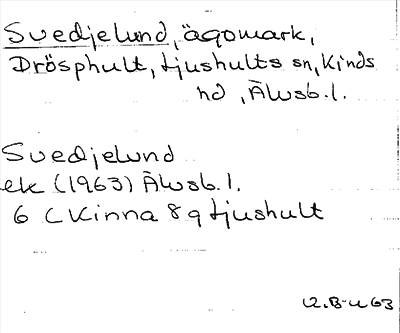 Svedjelund, ägomark,
Drösphult, Ljushults sn, Kinds
hd, Älvsb. l.
Svedjelund
ek (1963) Älvsb. l.
6 C Kinna 8 g Ljushult